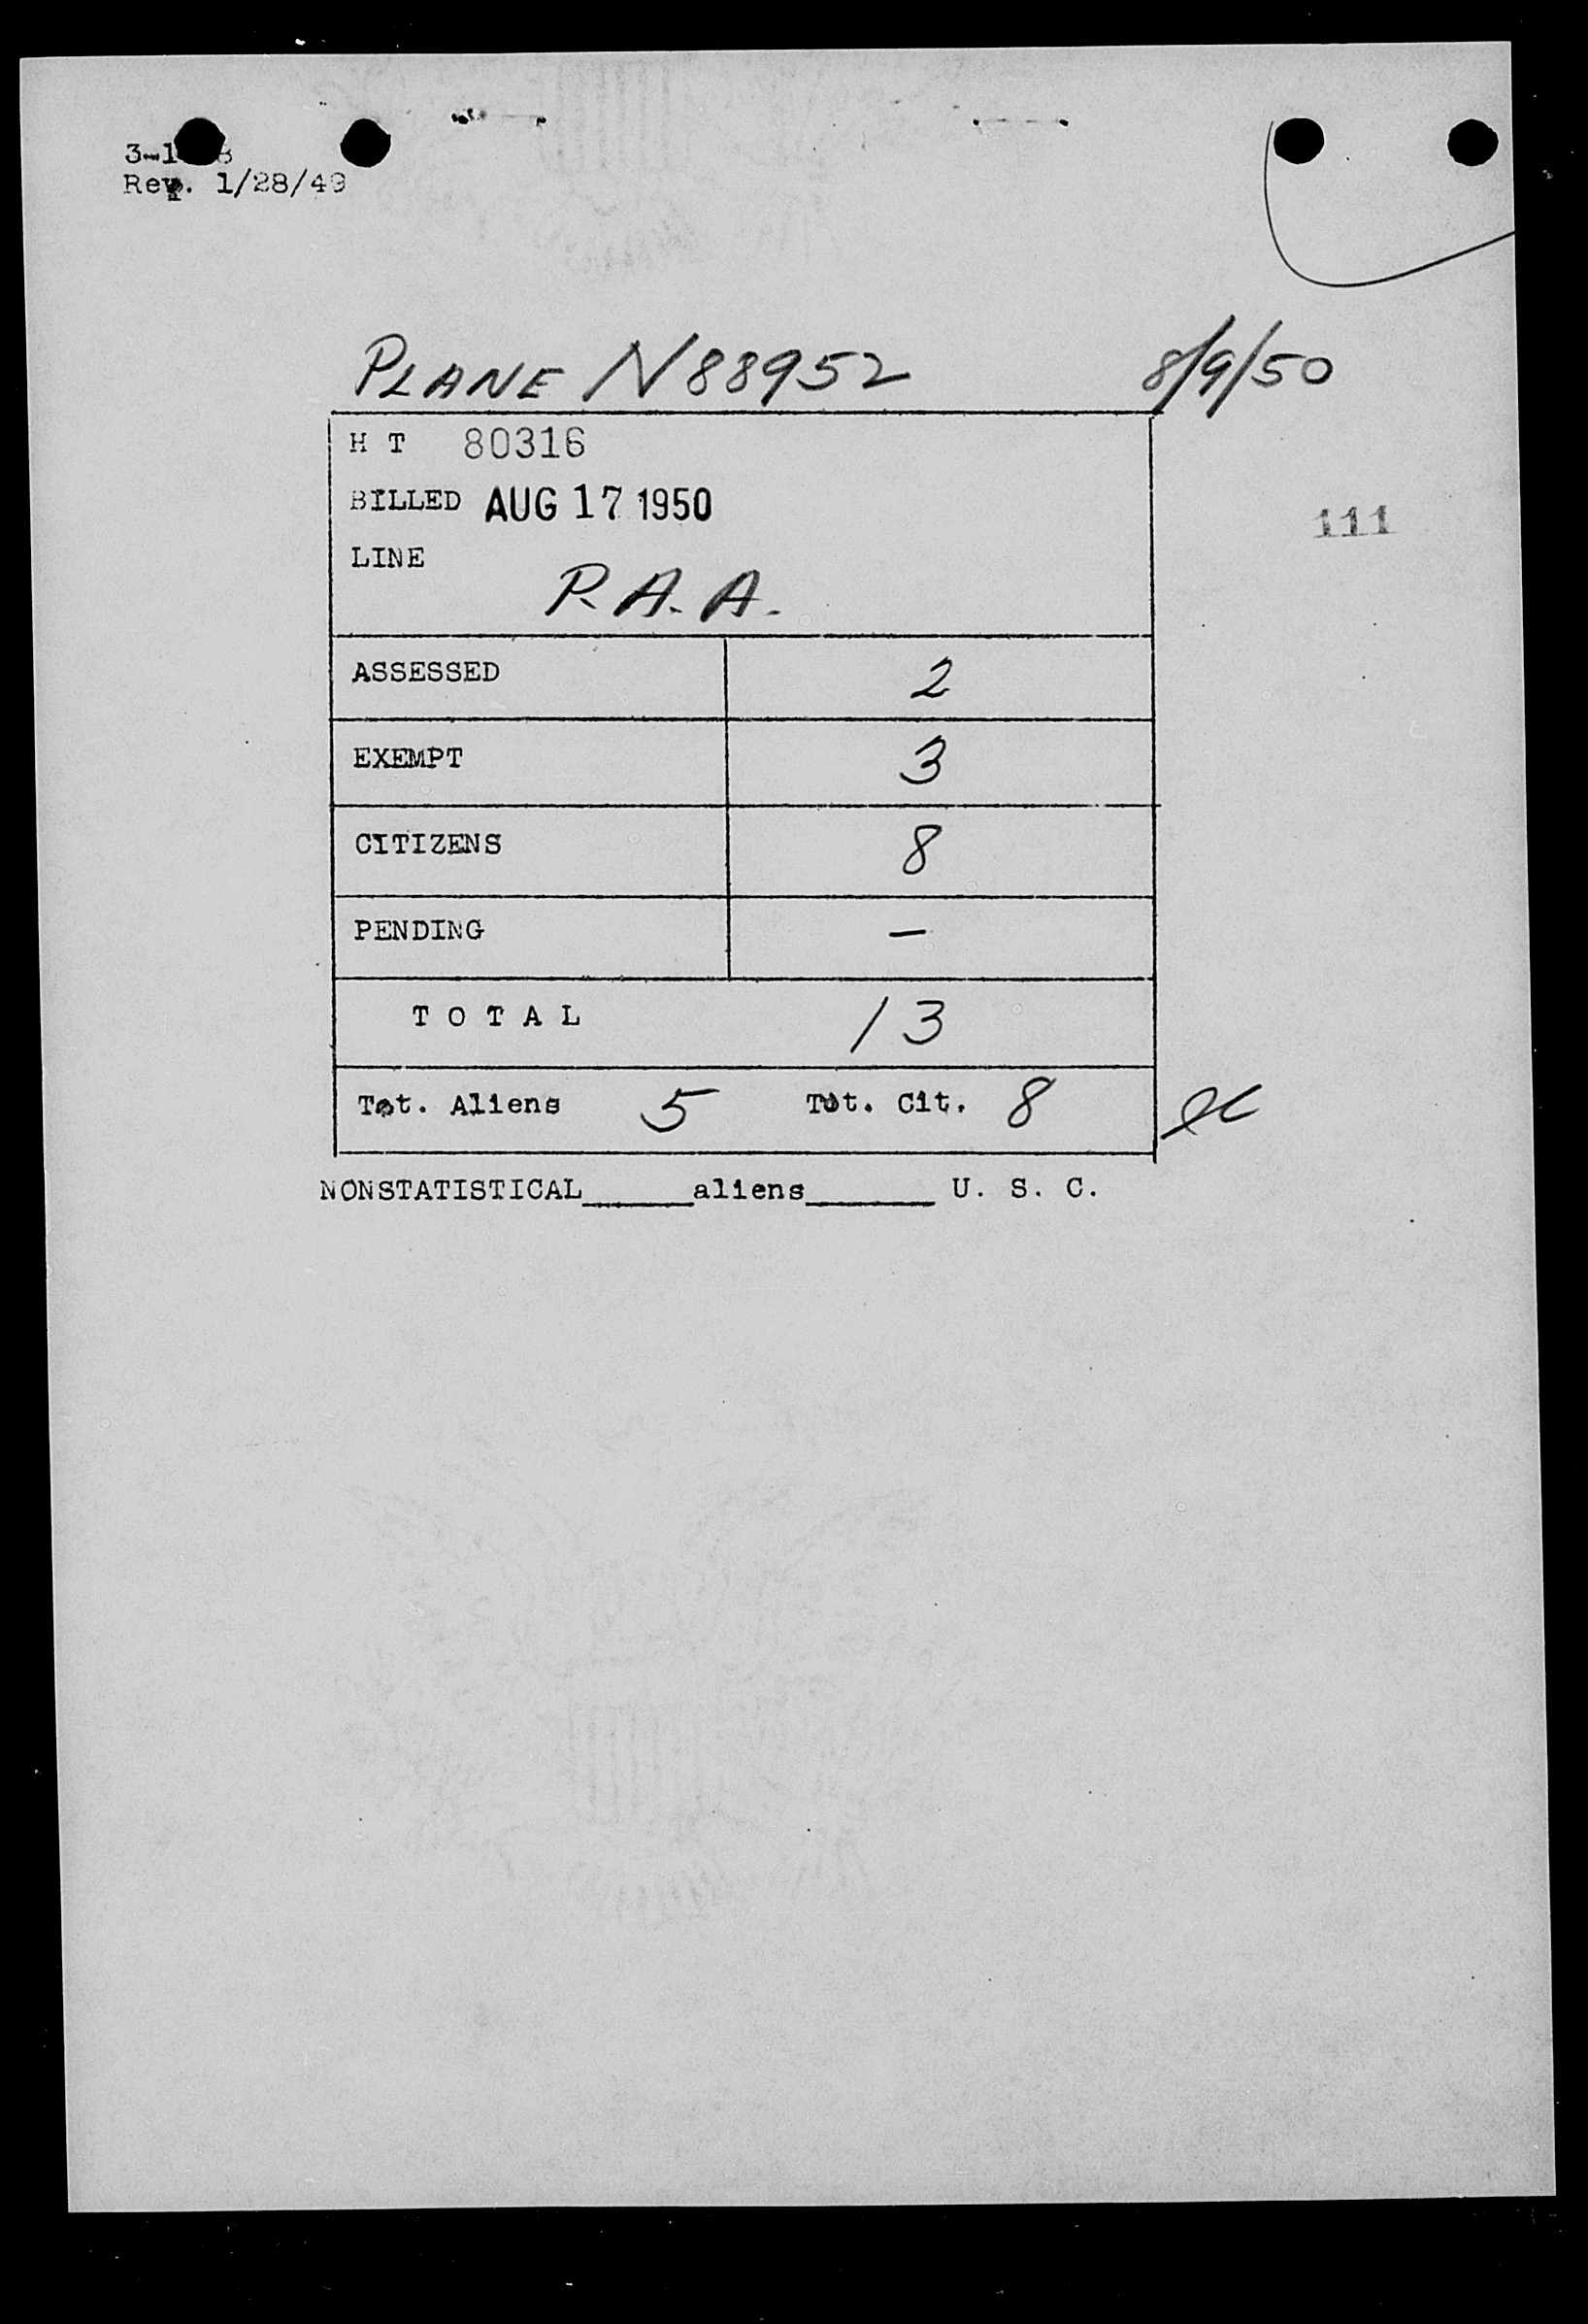 Rev. 1/28/49
PLANE N88952 8/9/50
H T 80316
BILLED AUG 17 1950
111
LINE
P.A.A.
ASSESSED 2
EXEMPT 3
CITIZENS 8
PENDING —
T O T A L 13
Tot. Aliens 5 Tot. Cit. 8
NONSTATISTICAL______aliens_______ U. S. C.